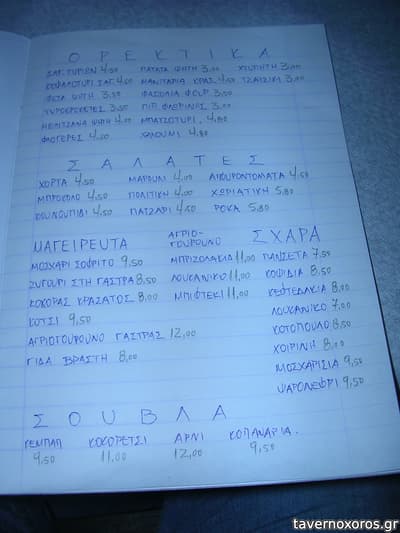 ΟΡΕΚΤΙΚΑ
ΣΑΓ. ΤΥΡΙΩΝ 4,50 ΠΑΤΑΤΑ ΨΗΤΗ 3,00 ΧΤΥΠΗΤΗ 3,00
ΚΕΦΑΛΟΤΥΡΙ ΣΑΓ. 4,50 ΜΑΝΙΤΑΡΙΑ ΚΡΑΣ. 4,50 ΤΖΑΤΖΙΚΙ 3,00
ΦΕΤΑ ΨΗΤΗ 3,50 ΦΑΣΟΛΙΑ ΦΟΥΡ. 3,50
ΤΥΡΟΚΡΟΚΕΤΕΣ 3,50 ΠΙΠ. ΦΛΩΡΙΝΗΣ 3,00
ΜΕΛΙΤΖΑΝΑ ΨΗΤΗ 4,00 ΜΠΑΤΖΟΤΥΡΙ. 4,80
ΦΛΟΓΕΡΕΣ 4,50 ΧΑΛΟΥΜΙ 4,80
ΣΑΛΑΤΕΣ
ΧΟΡΤΑ 4,50 ΜΑΡΟΥΛΙ 4,00 ΑΓΓΟΥΡΟΝΤΟΜΑΤΑ 4,50
ΜΠΡΟΚΟΛΟ 4,50 ΠΟΛΙΤΙΚΗ 4,00 ΧΩΡΙΑΤΙΚΗ 5,80
ΚΟΥΝΟΥΠΙΔΙ 4,50 ΠΑΤΖΑΡΙ 4,50 ΡΟΚΑ 5,80
ΜΑΓΕΙΡΕΥΤΑ
ΜΟΣΧΑΡΙ ΣΟΦΡΙΤΟ 9,50
ΖΥΓΟΥΡΙ ΣΤΗ ΓΑΣΤΡΑ 8,50
ΚΟΚΟΡΑΣ ΚΡΑΣΑΤΟΣ 8,00
ΚΟΤΣΙ 9,50
ΑΓΡΙΟΓΟΥΡΟΥΝΟ ΓΑΣΤΡΑΣ 12,00
ΓΙΔΑ ΒΡΑΣΤΗ 8,00
ΑΓΡΙΟ-
ΓΟΥΡΟΥΝΟ
ΜΠΡΙΖΟΛΑΚΙΑ 11,00
ΛΟΥΚΑΝΙΚΟ 11,00
ΜΠΙΦΤΕΚΙ 11,00
ΣΧΑΡΑ
ΠΑΝΣΕΤΑ 7,50
ΚΟΨΙΔΙΑ 8,50
ΚΕΦΤΕΔΑΚΙΑ 8,00
ΛΟΥΚΑΝΙΚΟ 7,00
ΚΟΤΟΠΟΥΛΟ 8,50
ΧΟΙΡΙΝΗ 8,00
ΜΟΣΧΑΡΙΣΙΑ 9,50
ΨΑΡΟΝΕΦΡΙ 9,50
ΣΟΥΒΛΑ
ΚΕΜΠΑΠ ΚΟΚΟΡΕΤΣΙ ΑΡΝΙ ΚΟΠΑΝΑΡΙΑ.
9,50 11,00 12,00 9,50
tavernoxoros.gr